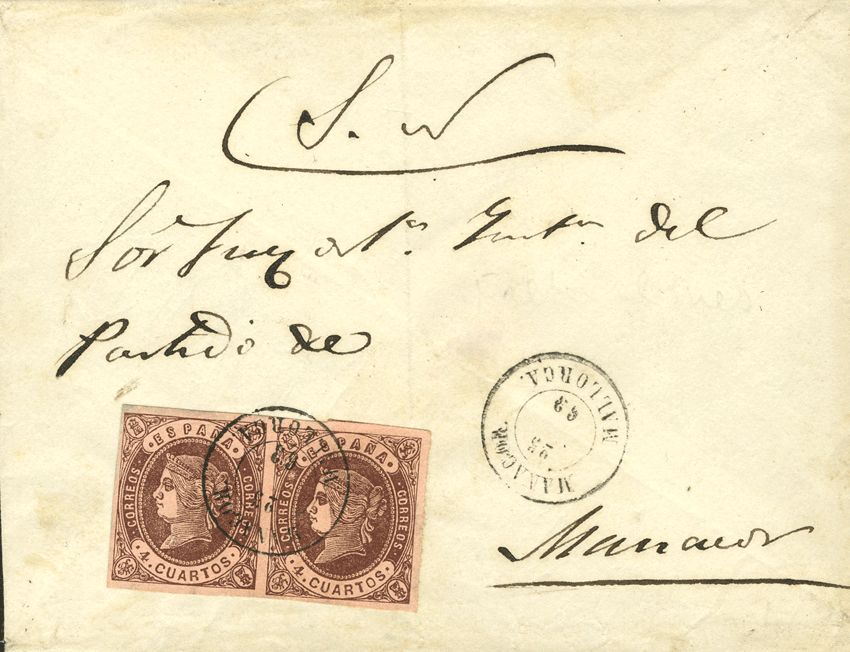 S. N
Sõr Juez de 1ª. Insta. del
Partido de
Manacor
MALLORCA.
63
25
MANACOR
MALLORCA
63
ESPAÑA
CORREOS
CORREOS
4. CUARTOS
ESPAÑA
CORREOS
CORREOS
4. CUARTOS